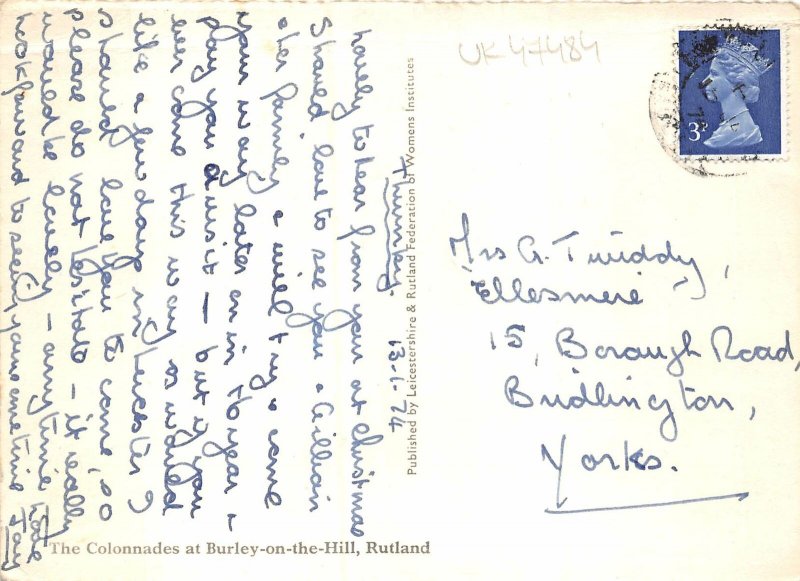 UK 47484
3P
Thurnby.
13.1.74
Lovely to hear from you at Christmas
Should love to see you & Gillian
& her family & will try & come
your way later on in the year &
pay you a visit – but if you
ever come this way or would
like a few days in Leicester I
should love you to come, so
please do not hesitate – it really
would be lovely – anytime
look forward to seeing you sometime
Joy
Published by Leicestershire & Rutland Federation of Womens Institutes
Mrs G. Twiddy,
"Ellesmere",
15, Borough Road,
Bridlington,
Yorks.
The Colonnades at Burley-on-the-Hill, Rutland